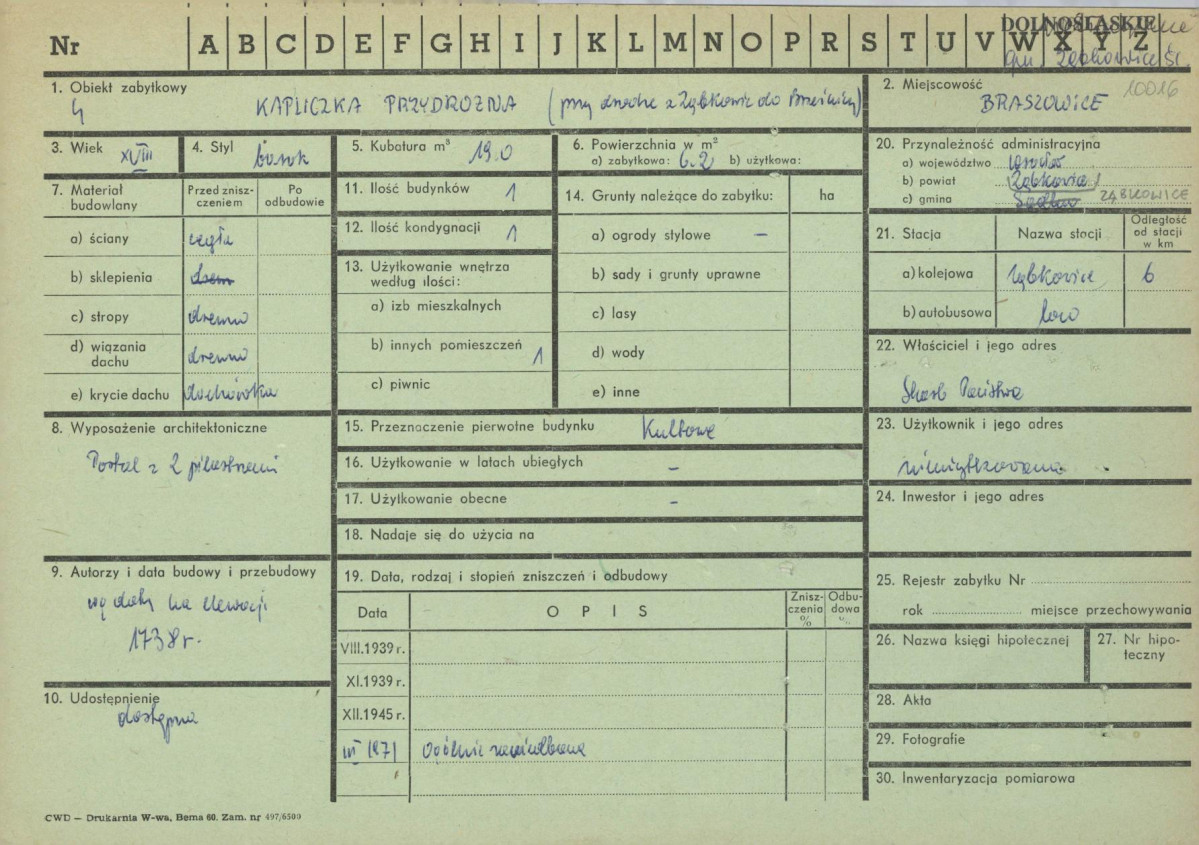 Nr A B C D E F G H I J K L M N O P R S T U V W X Y Z
DOLNOŚLĄSKIE
gm. Ząbkowice Śl.
1. Obiekt zabytkowy
4 KAPLICZKA PRZYDROŻNA (przy drodze z Ząbkowic do Brzeźnicy)
2. Miejscowość
BRASZOWICE 10016
3. Wiek XVIII
4. Styl barok
5. Kubatura m³ 19.0
6. Powierzchnia w m²
a) zabytkowa: 6.2 b) użytkowa:
20. Przynależność administracyjna
a) województwo
b) powiat Ząbkowice
c) gmina ZĄBKOWICE
7. Materiał budowlany
Przed zniszczeniem
Po odbudowie
a) ściany cegła
b) sklepienia drewn
c) stropy drewno
d) wiązania dachu drewno
e) krycie dachu dachówka
11. Ilość budynków 1
12. Ilość kondygnacji 1
13. Użytkowanie wnętrza według ilości:
a) izb mieszkalnych
b) innych pomieszczeń 1
c) piwnic
14. Grunty należące do zabytku: ha
a) ogrody stylowe –
b) sady i grunty uprawne
c) lasy
d) wody
e) inne
21. Stacja Nazwa stacji Odległość od stacji w km
a) kolejowa Ząbkowice 6
b) autobusowa loco
22. Właściciel i jego adres
Skarb Państwa
8. Wyposażenie architektoniczne
Portal z 2 pilastrami
15. Przeznaczenie pierwotne budynku Kultowe
16. Użytkowanie w latach ubiegłych –
17. Użytkowanie obecne –
18. Nadaje się do użycia na
23. Użytkownik i jego adres
nieużytkowana
24. Inwestor i jego adres
9. Autorzy i data budowy i przebudowy
wg daty na elewacji
1738 r.
19. Data, rodzaj i stopień zniszczeń i odbudowy
Data OPIS Zniszczenia % Odbudowa %
VIII.1939 r.
XI.1939 r.
XII.1945 r.
VI 1971 Ogólnie zaniedbana
25. Rejestr zabytku Nr
rok miejsce przechowywania
26. Nazwa księgi hipotecznej
27. Nr hipoteczny
10. Udostępnienie
dostępna
28. Akta
29. Fotografie
30. Inwentaryzacja pomiarowa
CWD — Drukarnia W-wa, Bema 60. Zam. nr 497/6500